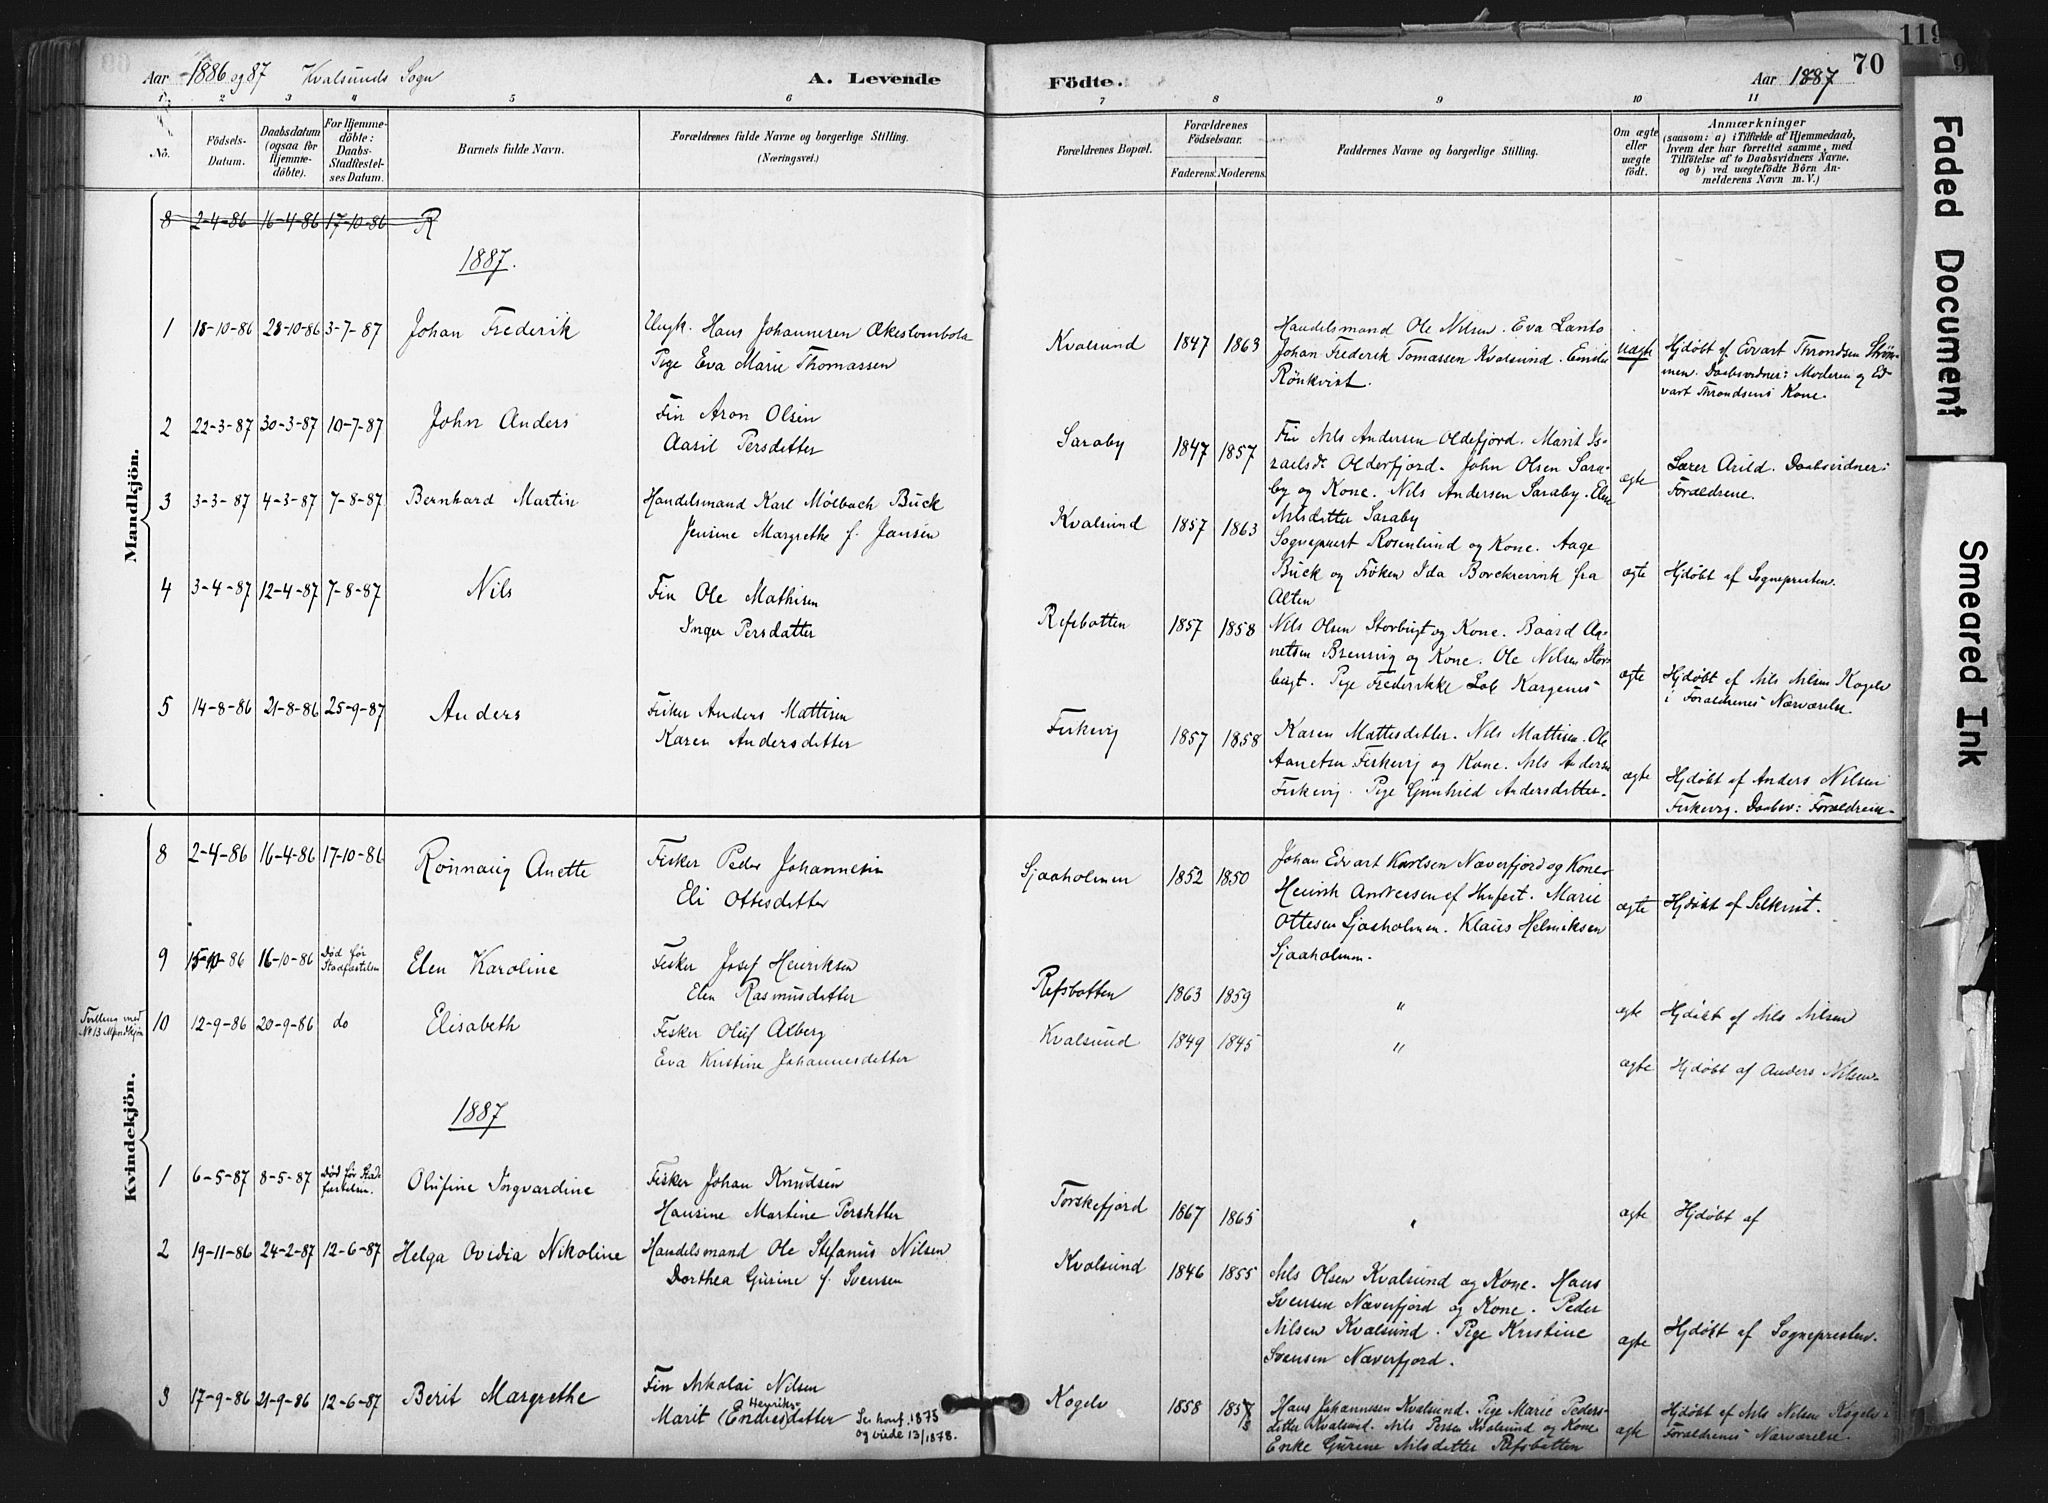 Aar 1886 og 87 Kvalsunds Sogn A. Levende
Födte. Aar 1887 70
119
Faded Document
Smeared Ink
1 2 3 4 5 6 7 8 9 10 11
No.
Födsels-
Datum.
Daabsdatum
(ogsaa for
Hjemme-
döbte).
For Hjemme-
döbte:
Daabs-
Stadfæstel-
ses Datum.
Barnets fulde Navn.
Forældrenes fulde Navne og borgerlige Stilling.
(Næringsvei.)
Forældrenes Bopæl.
Forældrenes
Födselsaar.
Faderens. Moderens.
Faddernes Navne og borgerlige Stilling.
Om ægte
eller
uægte
födt.
Anmærkninger
(saasom: a) i Tilfælde af Hjemmedaab,
hvem der har forrettet samme, med
Tilföielse af to Daabsvidners Navne,
og b) ved uægtefödte Börn An-
melderens Navn m. V.)
Mandkjön.
8 2-4-86 16-4-86 17-10-86 R
1887.
1 18-10-86 28-10-86 3-7-87 Johan Frederik
Ungk. Hans Johannesen
Pige Eva Marie Thomassen
Kvalsund 1847 1863
Handelsmand Ole Nilsen. Eva Lanto
Johan Frederik Tomassen Kvalsund. Emilie
Rönkvist.
Uægte
Hjdøbt af Edvart Throndsen Strøm-
men. Daabsvidner: Moderen og Ed-
vart Throndsens Kone.
2 22-3-87 30-3-87 10-7-87 John Anders
Fin Aron Olsen
Aaril Persdatter
Saraby 1847 1857
Fin Nils Andersen Oldefjord. Marit Is-
raelsd. Olderfjord. John Olsen Sara-
by og Kone. Nils Andersen Saraby. Elen
Nilsdatter Saraby
ægte
Lærer Arild. Daabsvidner:
Forældrene.
3 3-3-87 4-3-87 7-8-87 Bernhard Martin
Handelsmand Karl Mølbach Buck
Jensine Margrethe f. Jansen
Kvalsund 1857 1863
Sognepræst Rosenlund og Kone. Aage
Buck og Frøken Ida Borckrevink fra
Alten
ægte
Hjdøbt af Sognepresten.
4 3-4-87 12-4-87 7-8-87 Nils
Fin Ole Mathisen
Inger Persdatter
Refsbotten 1857 1858
Nils Olsen Storbugt og Kone. Baard Aa-
netsen Brensvig og Kone. Ole Nilsen Stor-
bugt. Pige Frederikke Kargenes
ægte
Hjdøbt af Nils Nilsen Kogelv
i Forældrenes Nærværelse.
5 14-8-86 21-8-86 25-9-87 Anders
Fisker Anders Mattisen
Karen Andersdatter
Fiskevig 1857 1858
Karen Mattisdatter. Nils Mattisen. Ole
Aanetsen Fiskevig og Kone. Nils Andersen
Fiskevig. Pige Gunhild Andersdatter.
ægte
Hjdøbt af Anders Nilsen
Fiskevig. Daabsv: Forældrene.
Kvindekjön.
8 2-4-86 16-4-86 17-10-86 Rønnaug Anette
Fisker Peder Johannesen
Eli Ottesdatter
Sjaaholmen 1852 1850
Johan Edvart Karlsen Næverfjord og Kone.
Henrik Andreasen af Hmfest. Marie
Ottesen Sjaaholmen. Klaus Helmiksen
Sjaaholmen.
ægte
Hjdøbt af Selkvist.
9 15-10-86 16-10-86 Død før
Stadfæstelsen
Elen Karoline
Fisker Josef Henriksen
Elen Rasmusdatter
Refsbotten 1863 1859 "
ægte Hjdøbt af Nils Nilsen
Tvilling med
No 13 Mandkjøn
10 12-9-86 20-9-86 do Elisabeth
Fisker Oluf Alberg
Eva Kristine Johannesdatter
Kvalsund 1849 1845 "
ægte Hjdøbt af Anders Nilsen.
1887
1 6-5-87 8-5-87 Død før Stad-
fæstelsen.
Olufine Ingvardine
Fisker Johan Knudsen
Hansine Martine Persdatter
Torskefjord 1867 1865 "
ægte Hjdøbt af
2 19-11-86 24-2-87 12-6-87 Helga Ovidia Nikoline
Handelsmand Ole Stefanus Nilsen
Dorthea Gurine f. Svensen
Kvalsund 1846 1855
Nils Olsen Kvalsund og Kone. Hans
Svensen Næverfjord og Kone. Peder
Nilsen Kvalsund. Pige Kristine
Svensen Næverfjord.
ægte
Hjdøbt af Sognepresten.
3 17-9-86 21-9-86 12-6-87 Berit Margrethe
Fin Nikolai Nilsen
Henriks-
Marit (Endresdatter Se konf. 1875
og viede 13/1878.
Kogelv 1858 1857
Hans Johannesen Kvalsund. Pige Marie Peders-
datter Kvalsund. Nils Persen Kvalsund og Kone
Enke Gurine Nilsdatter Refsbotten
ægte
Hjdøbt af Nils Nilsen Kogelv i
Forældrenes Nærværelse.